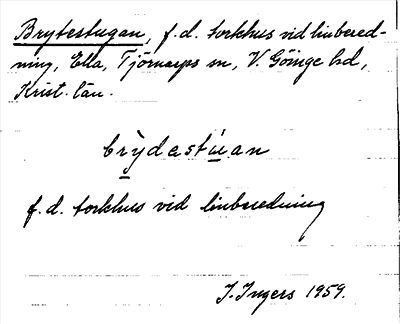 Brytestugan, f.d. torkhus vid linbered-
ning, Ella, Tjörnarps sn, V. Göinge hd,
Krist. län.
brỳdastúan
f.d. torkhus vid linberedning
I. Ingers 1959.